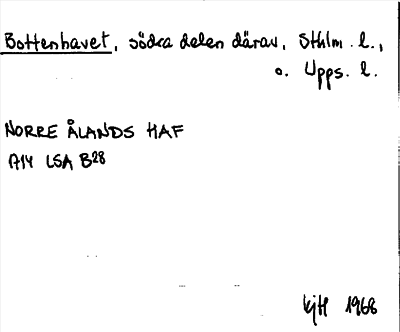 Bottenhavet, södra delen därav, Sthlm. l.,
o. Upps. l.
NORRE ÅLANDS HAF
A14 LSA B28
kjH 1968